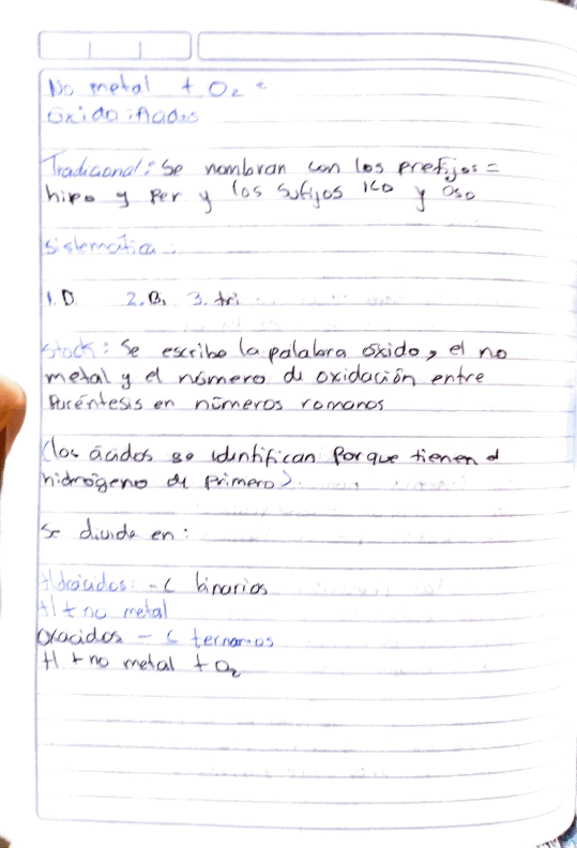 No metal + O2 =
Oxido: Acidos
Tradicional: Se nombran con los prefijos =
hipo y Per y los sufijos ico y Oso
Sistematica:
1. D. 2. Bi 3. tri
Stock: Se escribe la palabra óxido, el no
metal y el número de oxidación entre
Paréntesis en números romanos
(los ácidos se identifican Porque tienen el
hidrógeno de primero)
Se divide en:
Hidrácidos: - C binarios
H + no metal
Oxacidos - C ternarios
H + no metal + O2